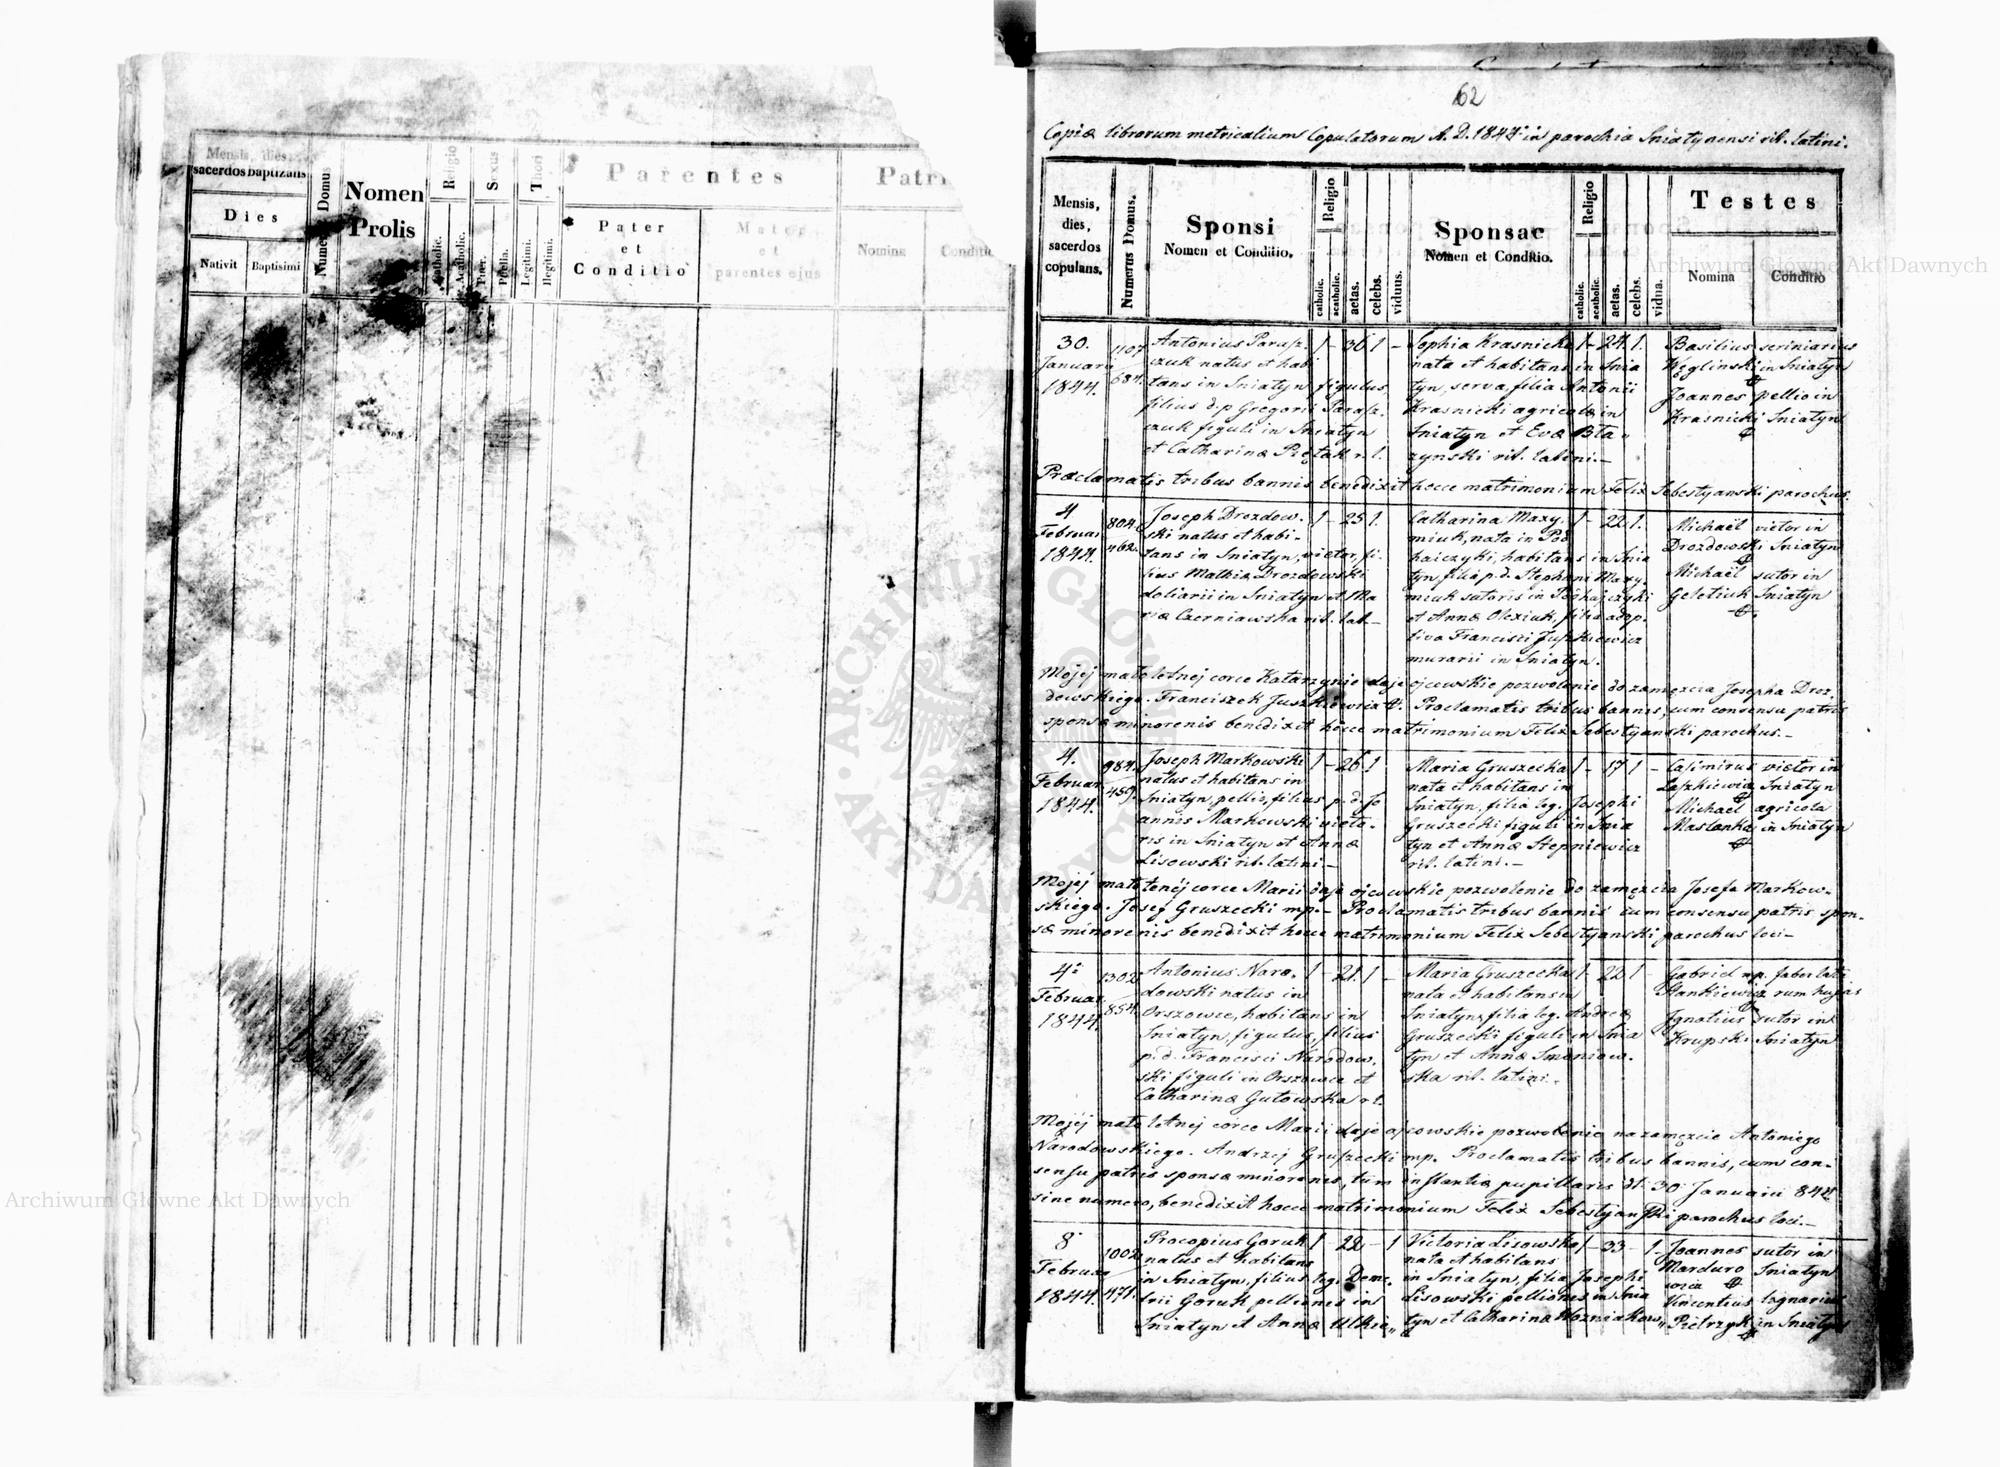 Mensis, dies
sacerdos baptizans
Dies
Nativit
Baptisimi
Numerus Domus
Nomen
Prolis
Religio
Catholic.
Acatholic.
Sexus
Puer.
Puella.
Thori
Legitimi.
Illegitimi.
Parentes
Pater
et
Conditio
Mater
et
parentes ejus
Patri
Nomina
Conditio
62
Copiæ librorum metricalium Copulatorum A. D. 1844 in parochia Sniatynensi rit. latini.
Mensis,
dies,
sacerdos
copulans.
Numerus Domus.
Sponsi
Nomen et Conditio.
Religio
catholic.
acatholic.
aetas.
celebs.
viduus.
Sponsae
Nomen et Conditio.
Religio
catholic.
acatholic.
aetas.
celebs.
vidua.
Testes
Nomina
Conditio
30.
Januarii
1844.
1107
684.
Antonius Parasz.
czuk natus et habi
tans in Sniatyn figulus,
filius d.p Gregorii Parasz.
czuk figuli in Sniatyn
et Catharinæ Piętak r. l.
1 - 30 1 -
Sophia Krasnicka
nata et habitans in Snia
tyn, serva, filia Antonii
Krasnicki agricolæ in
Sniatyn et Evæ Bła
zynski rit. latini.—
1 - 24 1.
Basilius scriniarius
Węglinski in Sniatyn
Joannes pellio in
Krasnicki Sniatyn
Præclamatis tribus bannis benedixit hocce matrimonium Felix Sebestyanski parochus.
4
Februar
1844.
804.
462.
Joseph Drozdow.
ski natus et habi-
tans in Sniatyn, vietor, fi.
lius Mathiæ Drozdowski
doliarii in Sniatyn et Ma
riæ Czerniawska rit. lat.—
1 - 25 1.
Catharina Maxy.
miuk, nata in Pod
haiczyki, habitans in Snia
tyn, filia p.d. Stephani Maxy.
miuk sutoris in Podhajczyki
et Annæ Olexiuk, filia adop.
tiva Francisci Juszkiewicz
murarii in Sniatyn.
1 - 22 1.
Michaël vietor in
Drozdowski Sniatyn
Michaël sutor in
Geletiuk Sniatyn
Mojéj małoletnej corce Katarzynie daje ojcowskie pozwolenie do zamęzcia Josepha Droz.
dowskiego. Franciszek Juszkiewicz. Proclamatis tribus bannis, cum consensu patris
sponsæ minorenis benedixit hocce matrimonium Felix Sebestyanski parochus.—
4.
Februar
1844.
984.
459.
Joseph Markowski
natus et habitans in
Sniatyn, pellio, filius p. d. Jo
annis Markowski vieto.
ris in Sniatyn et Annæ
Lisowski rit. latini.—
1 - 26 1
Maria Gruszecka
nata et habitans in
Sniatyn, filia leg. Josephi
Gruszecki figuli in Snia
tyn et Annæ Stepniewicz
rit. latini.—
1 - 17 1 -
Casimirus vietor in
Laszkiewicz Sniatyn
Michaël agricola
Maslanka in Sniatyn
Mojéj małoletnéj corce Marii daje ojcowskie pozwolenie do zamęzcia Josefa Markow.
skiego. Josef Gruszecki mp.— Proclamatis tribus bannis cum consensu patris spon.
sæ minorenis benedixit hocce matrimonium Felix Sebestyanski parochus loci—
4
Februar
1844.
1302
854.
Antonius Naro.
dowski natus in
Orszowce, habitans in
Sniatyn, figulus, filius
p.d. Francisci Narodow.
ski figuli in Orszowce et
Catharinæ Gutowska r l.
1 - 21. 1 -
Maria Gruszecka
nata et habitans in
Sniatyn, filia leg. Andreæ
Gruszecki figuli in Snia
tyn et Annæ Smoniow.
ska rit. latini.
1 - 22 1 -
Gabriel mp. faber
Stankiewicz
Ignatius sutor in
Krupski Sniatyn
Mojéj małoletnej córce Marii daje ojcowskie pozwolenie na zamęzcie Antoniego
Narodowskiego. Andrzej Gruszecki mp. Proclamatis tribus bannis, cum con.
sensu patris sponsæ minorenis, tum instantiæ pupillaris dt 30 Januarii 844
sine numero, benedixit hocce matrimonium Felix Sebestyanski parochus loci.—
8
Februar
1844.
1002
471.
Procopius Goruk
natus et habitans
in Sniatyn, filius leg. Deme.
trii Goruk pellionis in
Sniatyn et Annæ
1 - 22 - 1
Victoria Lisowska
nata et habitans
in Sniatyn, filia Josephi
Lisowski pellionis in Snia
tyn et Catharinæ Wozniakow„
1 - 33 - 1.
Joannes sutor in
Marduro Sniatyn
wicz
Vincentius lignarius
Pietrzyk in Sniatyn
ARCHIWUM GŁÓWNE AKT DAWNYCH
Archiwum Główne Akt Dawnych
Archiwum Główne Akt Dawnych